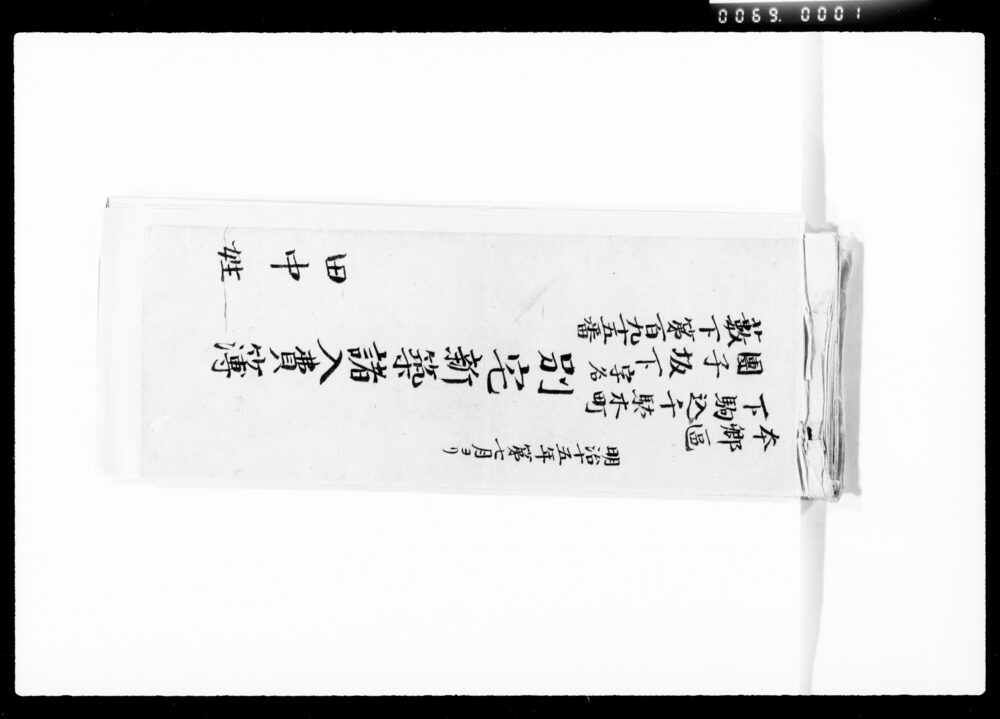 明治十五年第七月ヨリ
本郷區
下駒込千駄木町
團子坂下字名
藪下第百九十五番
別宅新築諸入費簿
田中姓
0069.0001